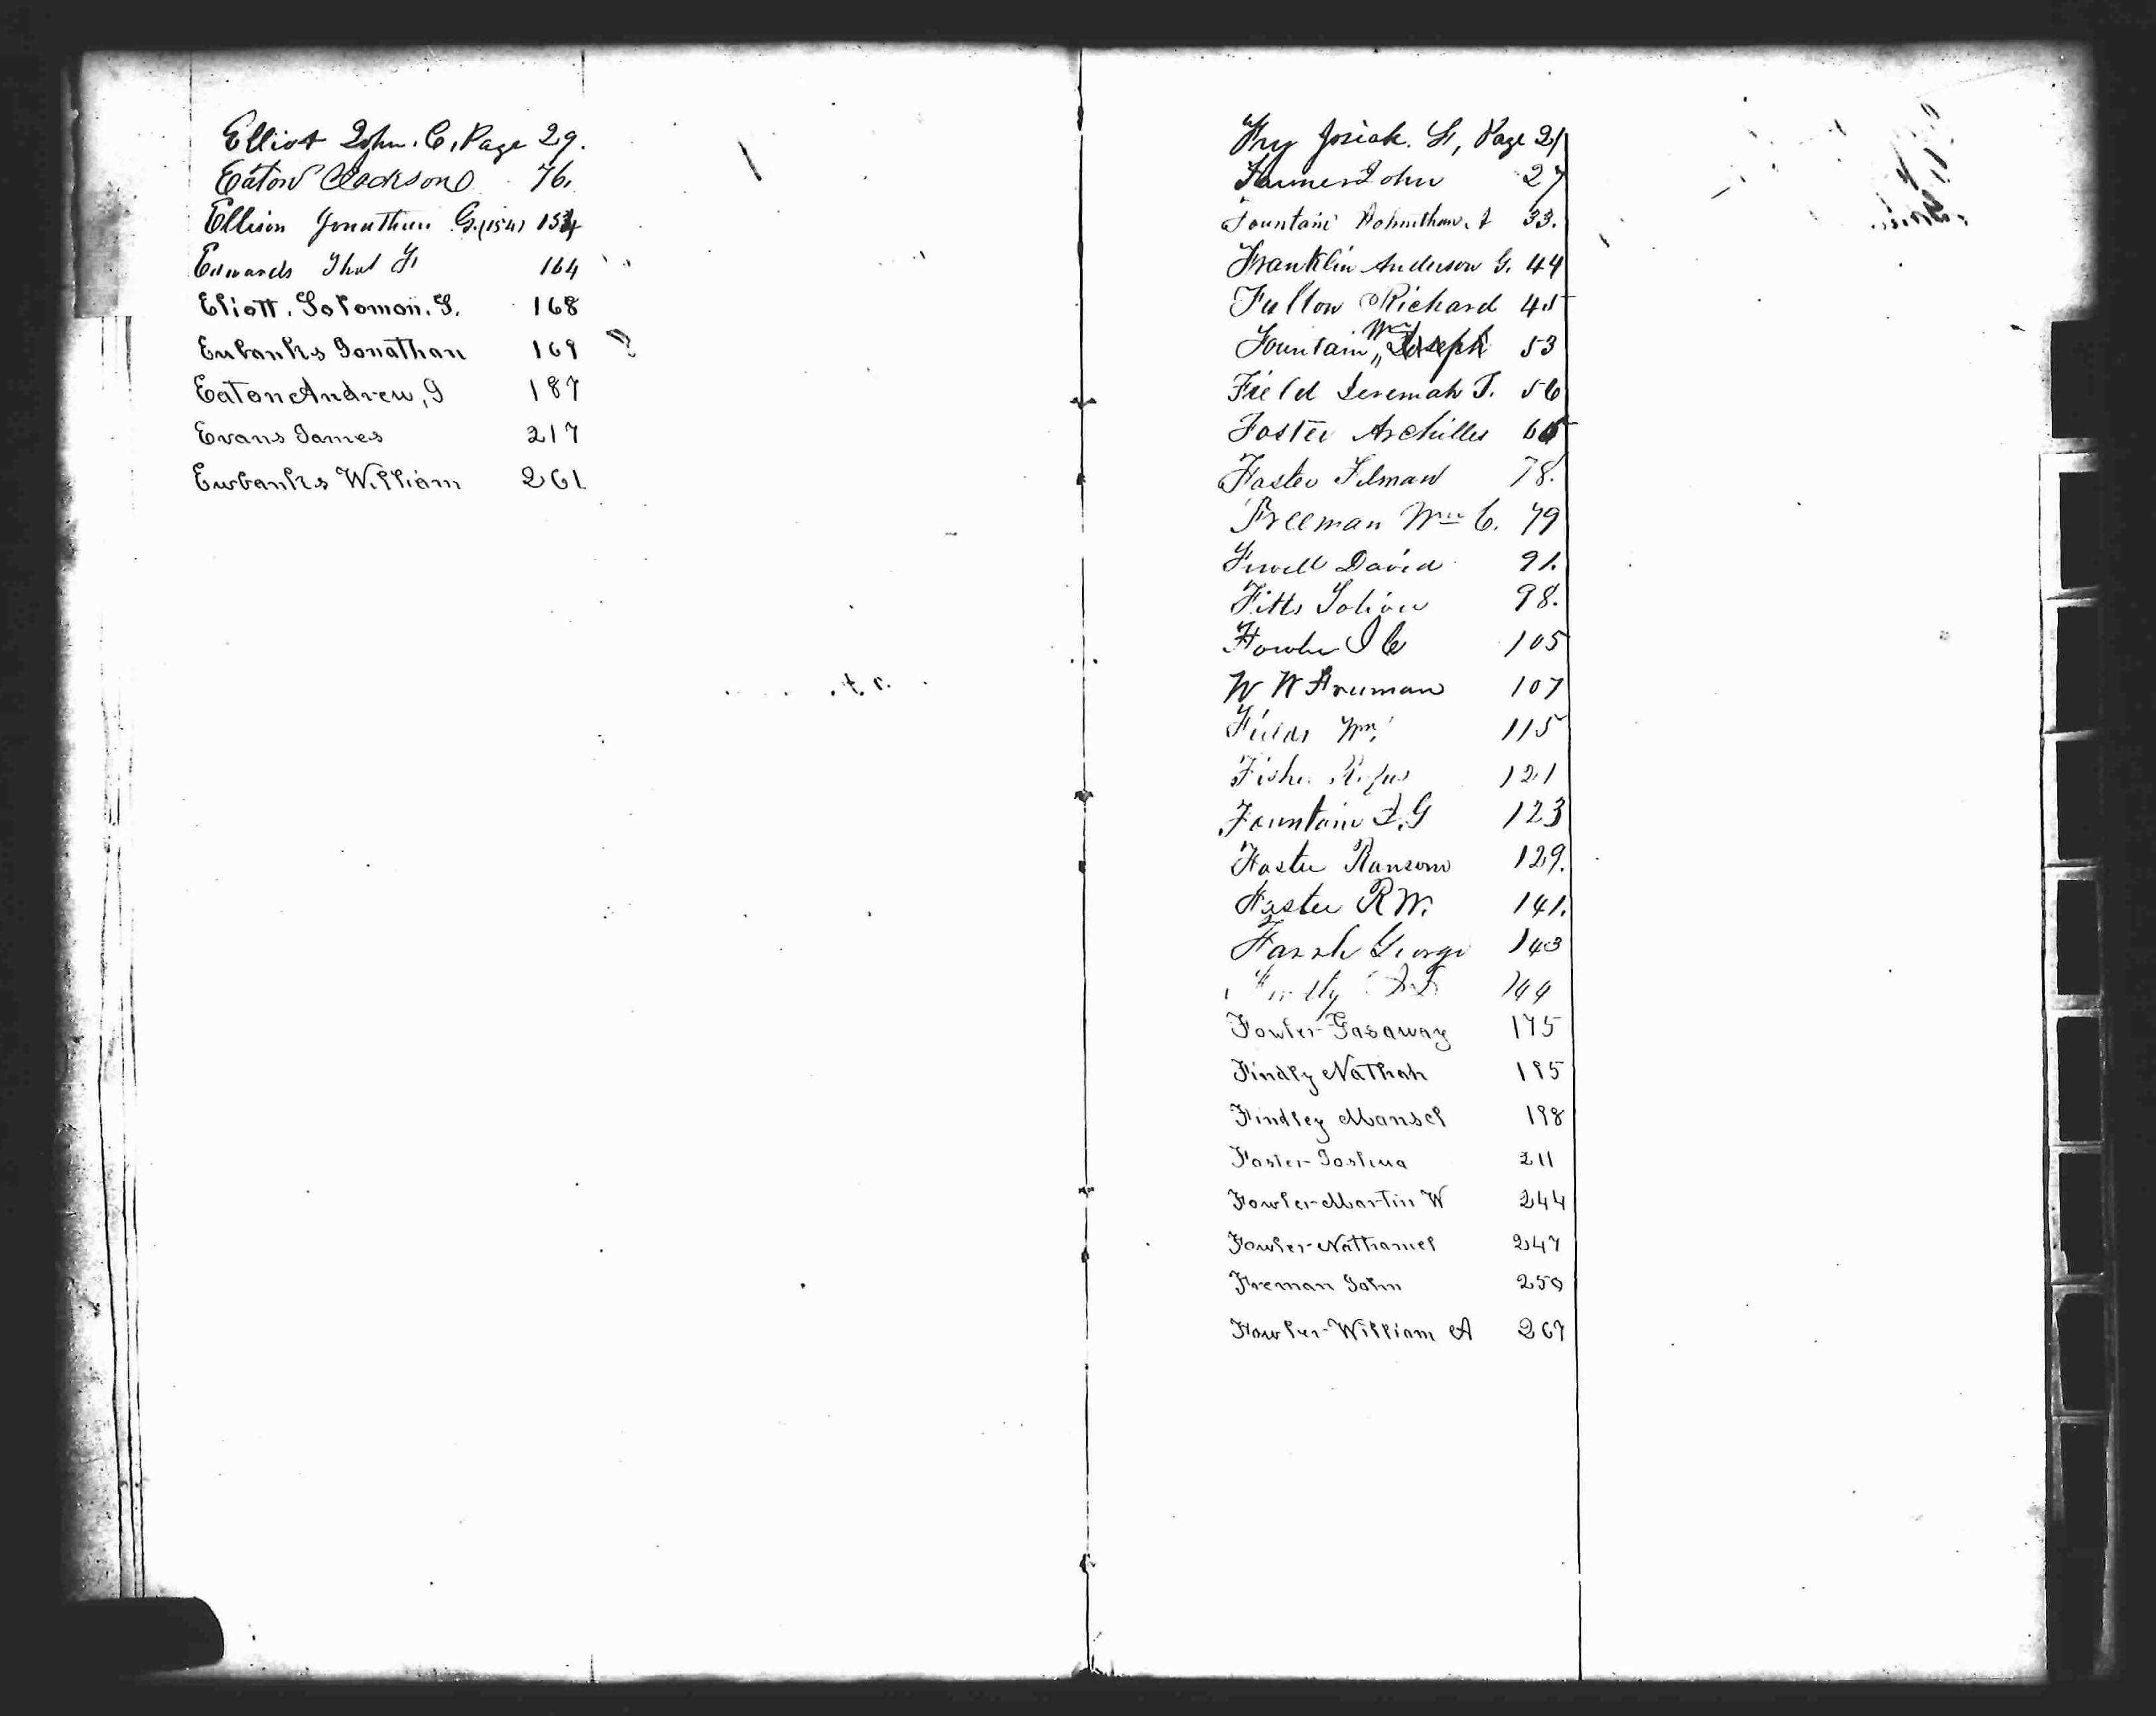 Elliot John. C, Page 29.
Eaton Clackson 76.
Ellison Jonathan G. (154) 154
Edwards Thos F 164
Eliott. Solomon. S. 168
Eubanks Jonathan 169
Eaton Andrew, J 187
Evans James 217
Ewbanks William 261
Fry Josiah. H, Page 21
John 27
Fountain 33.
Franklin Anderson G. 44
Fulton Richard 45
Fountain Wm Joseph 53
Field Jeremah T. 56
Foster Archilles
Foster Tilman 78.
Freeman Wm C. 79
Fewell David 91.
Fitts 98.
Fowler J C 105
W W Freeman 107
Fields Wm 115
Fisher Rufus 121
Fountain J. G 123
Foster Ransom 129.
Foster R W. 141.
George 143
144
Fowler Gasaway 175
Findly Nathan 195
Findley Mansel 198
Foster Joshua 211
Fowler Martin W 244
Fowler Nathaniel 247
Freman John 250
Fowler William A 267